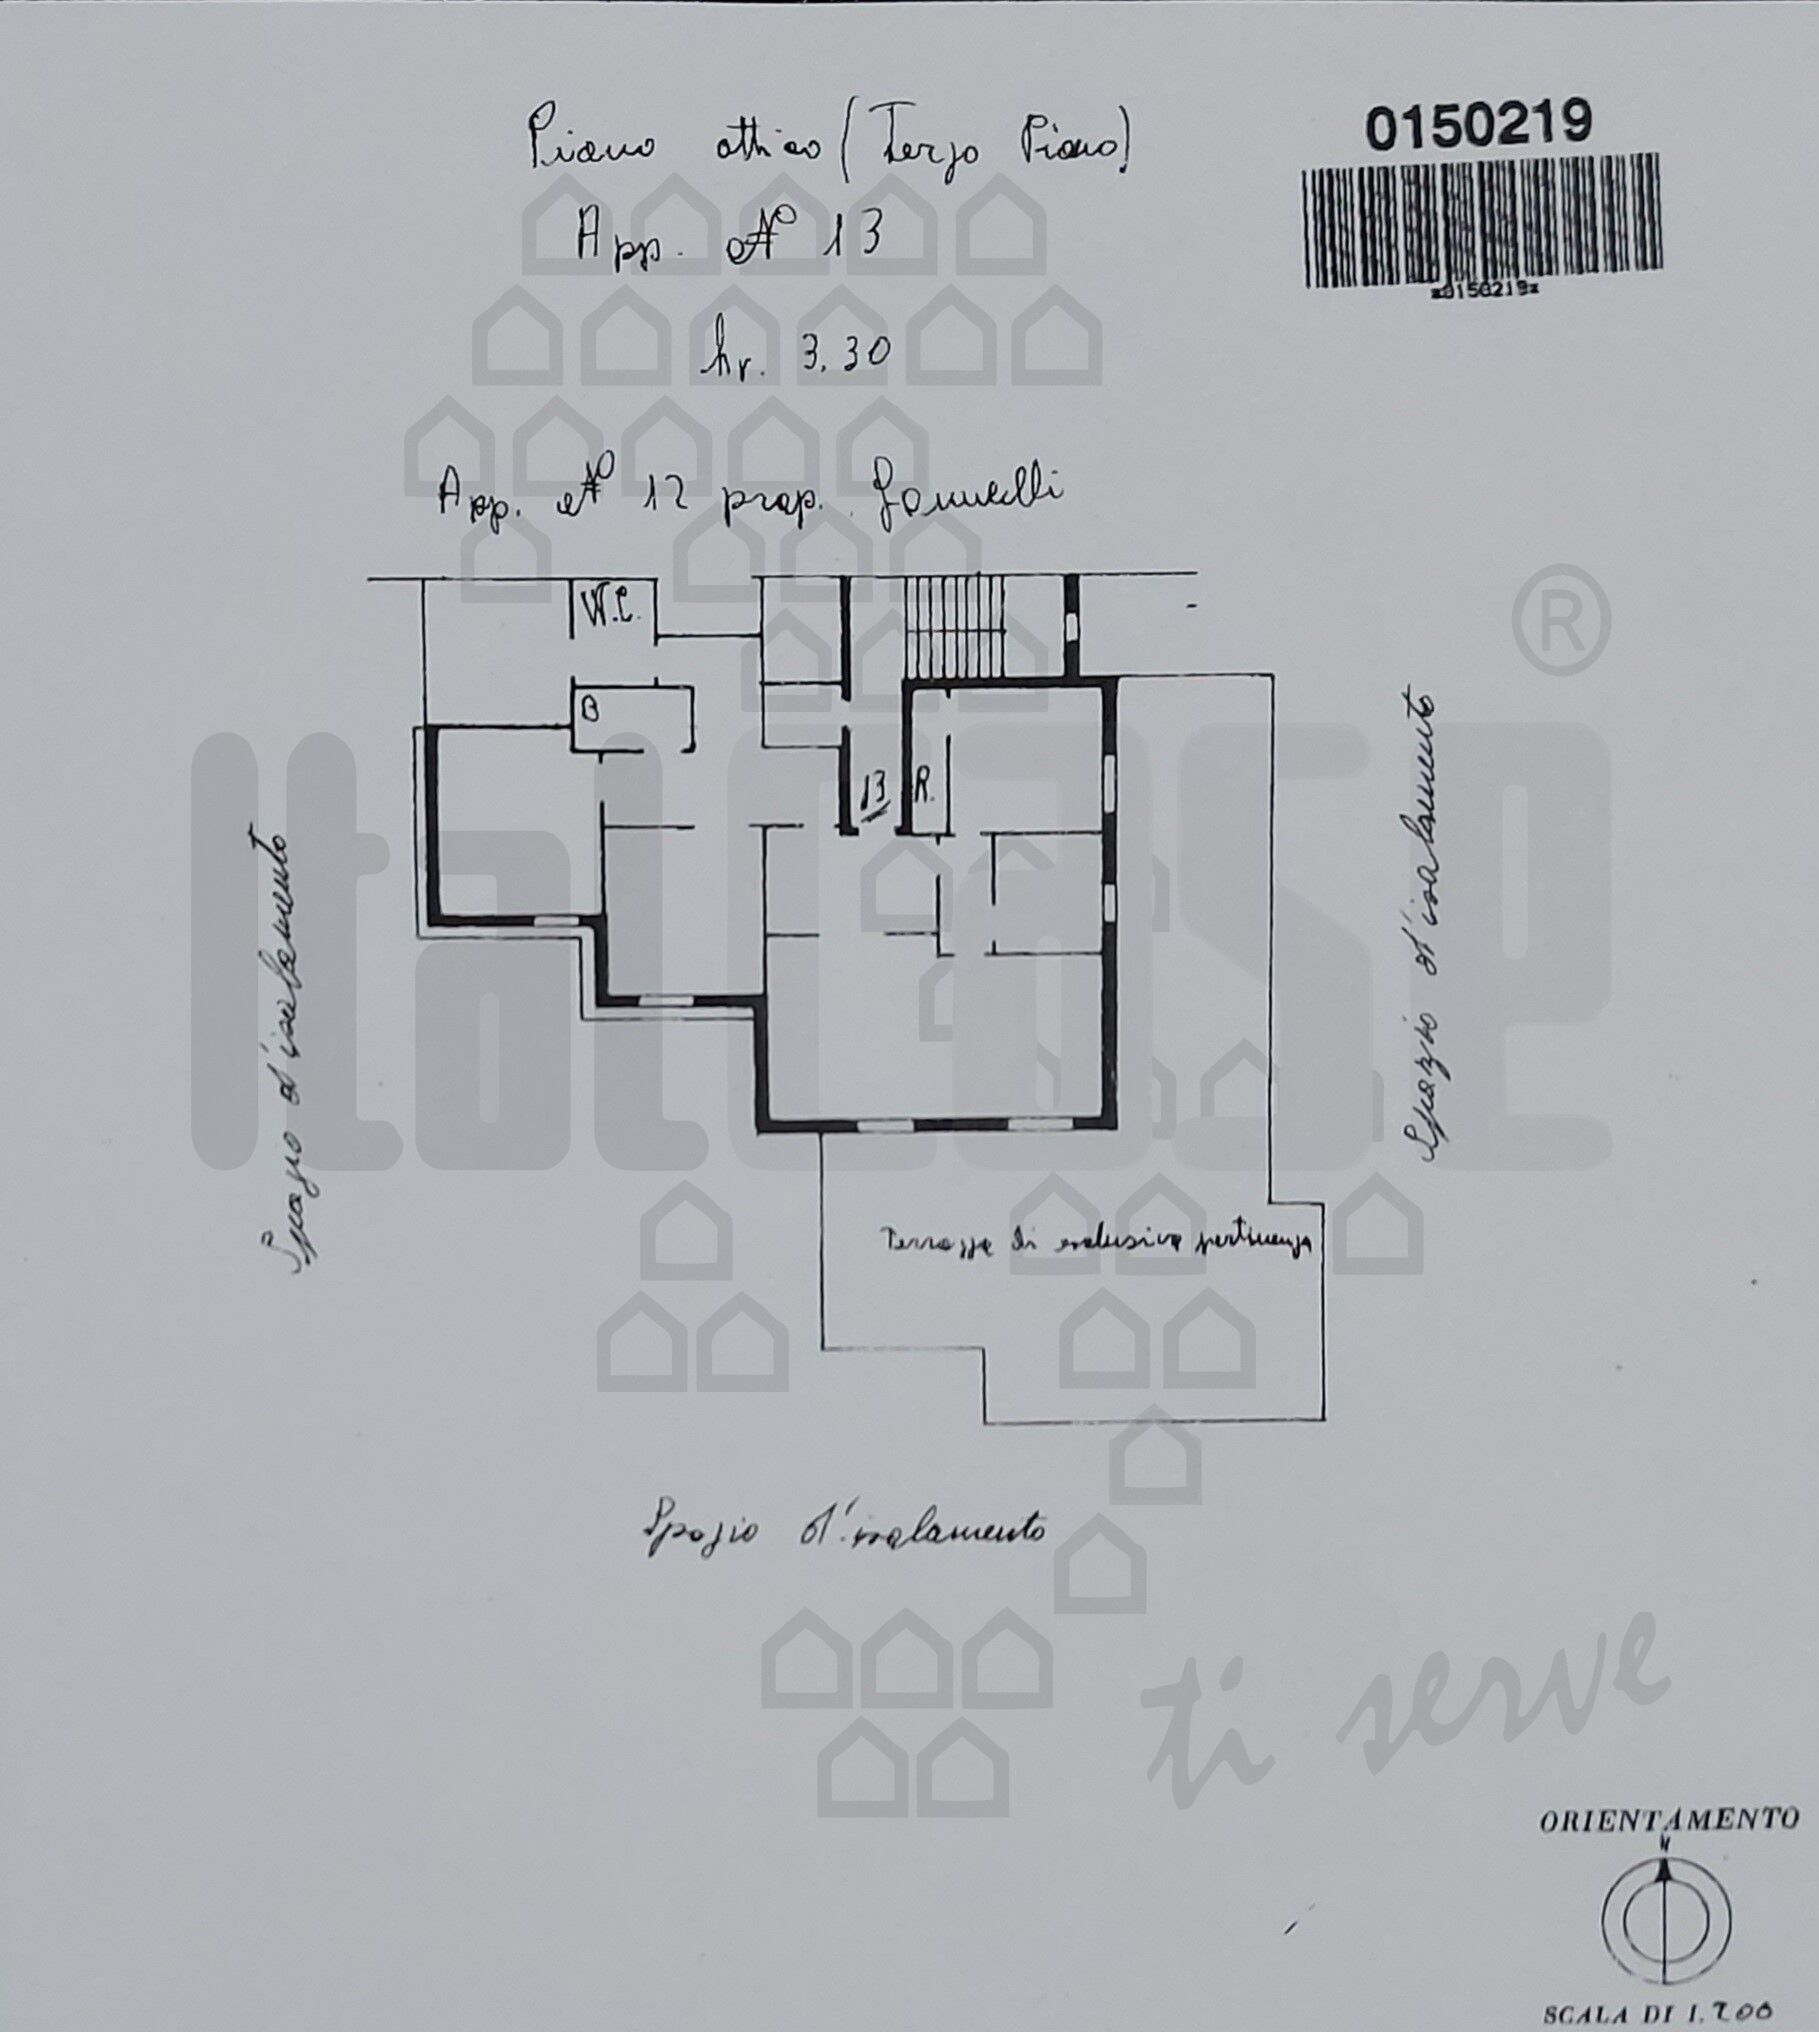 0150219
*0150219*
Piano attico (Terzo Piano)
App. N° 13
hr. 3.30
App. N° 12 prop. Iannelli
W.C.
B
13
R.
Spazio d'isolamento
Spazio d'isolamento
Terrazza di esclusiva pertinenza
Spazio d'isolamento
Italcase ®
ti serve
ORIENTAMENTO
N
SCALA DI 1.200